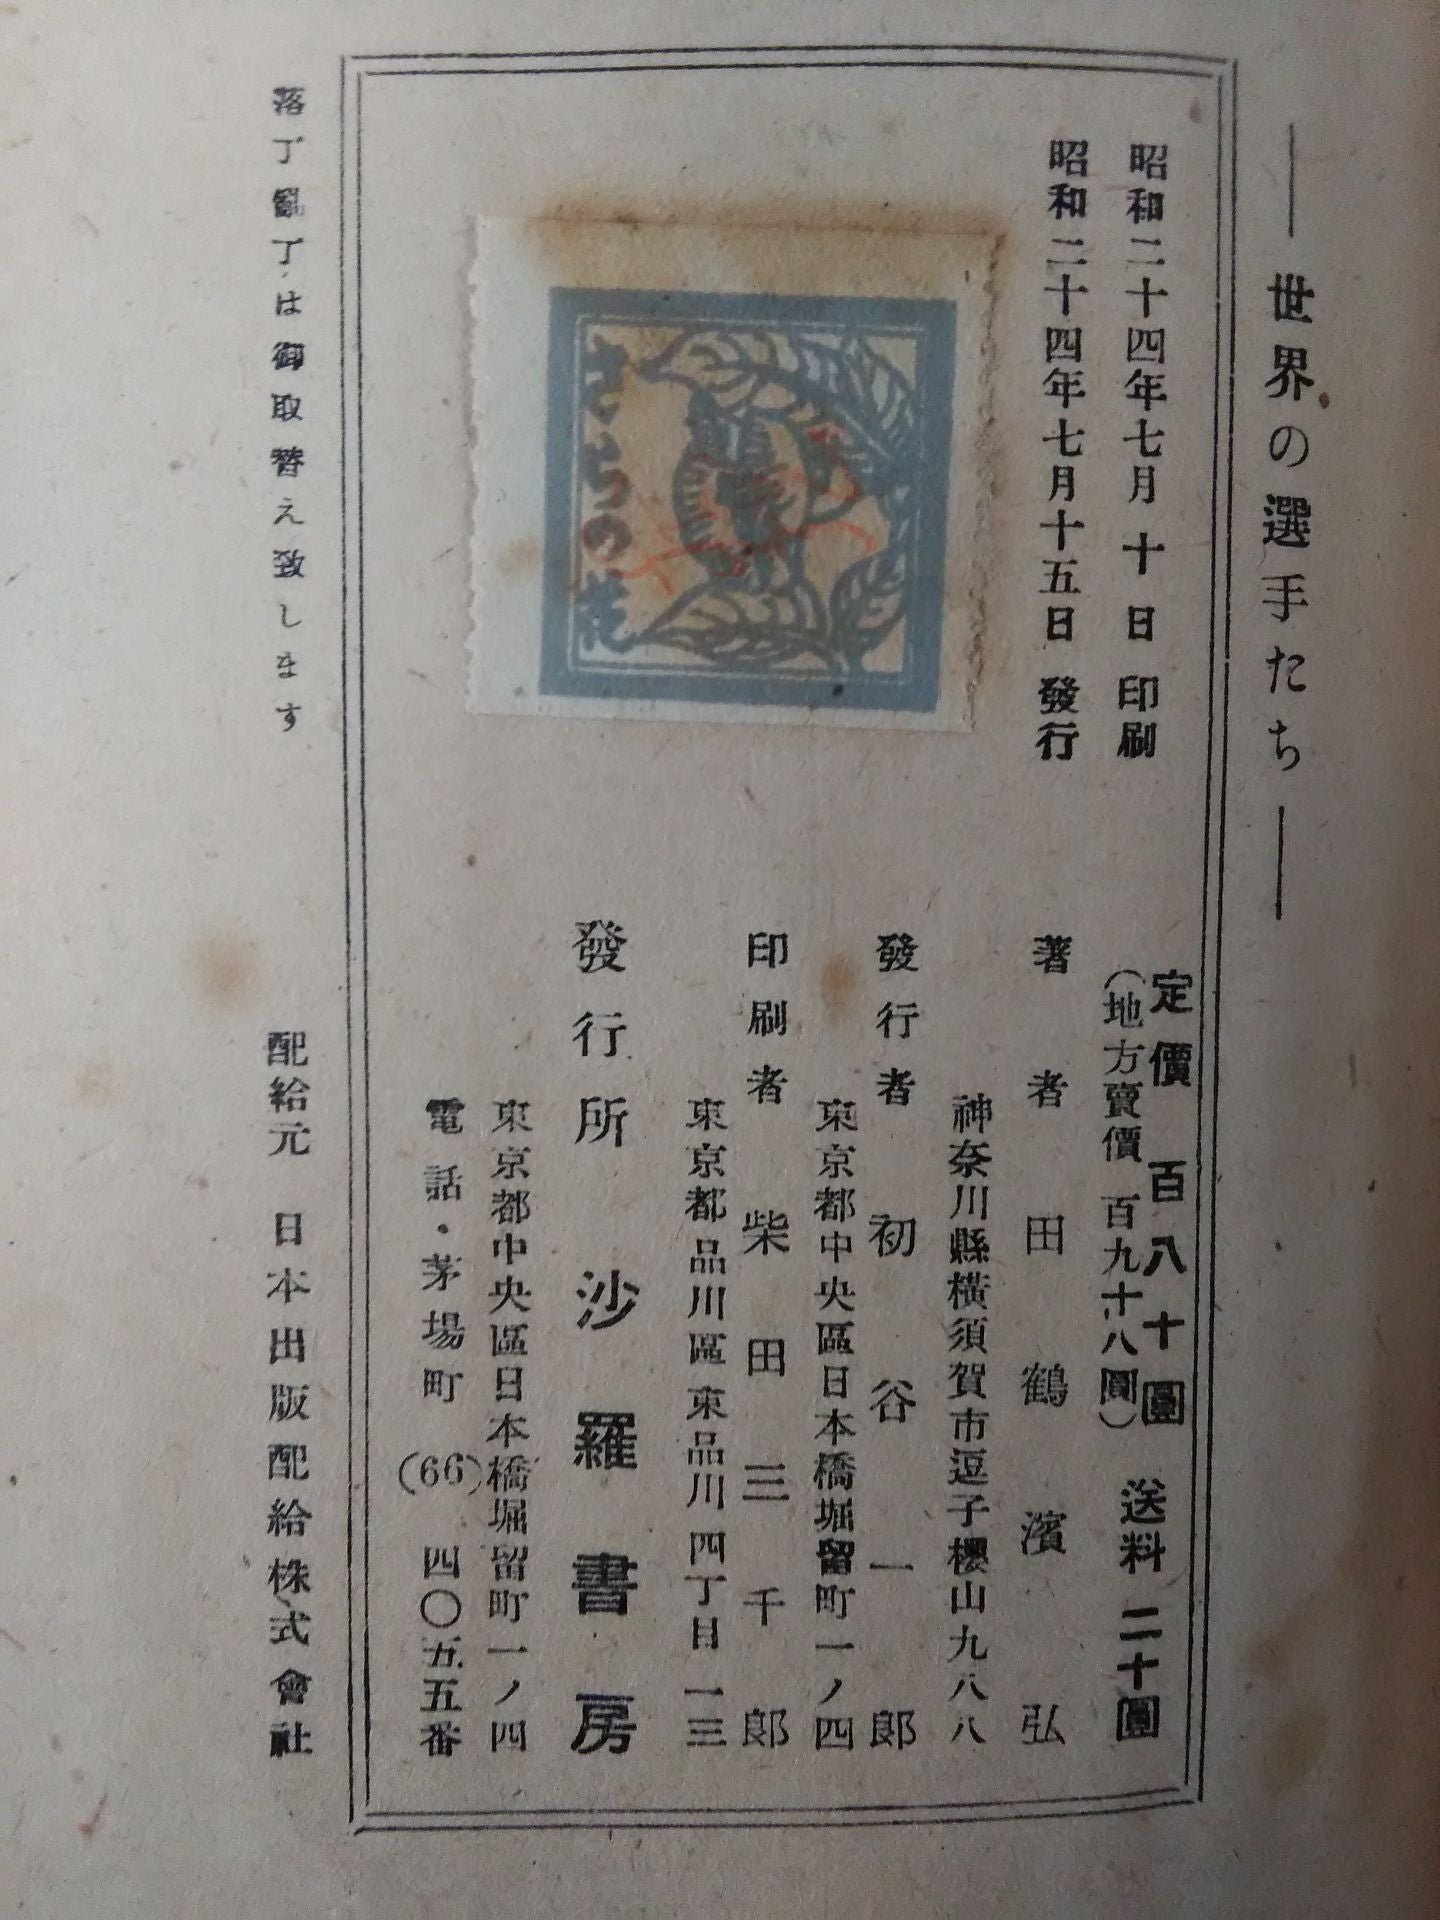 ―世界の選手たち―
昭和二十四年七月十日印刷
昭和二十四年七月十五日發行
定價 百八十圓 送料 二十圓
(地方賣價 百九十八圓)
著者 田鶴濱弘
神奈川縣横須賀市逗子櫻山九八八
發行者 初谷一郎
東京都中央區日本橋堀留町一ノ四
印刷者 柴田三千郎
東京都品川區東品川四丁目一三
發行所 沙羅書房
東京都中央區日本橋堀留町一ノ四
電話・茅場町(66)四〇五五番
落丁亂丁は御取替え致します
配給元 日本出版配給株式會社